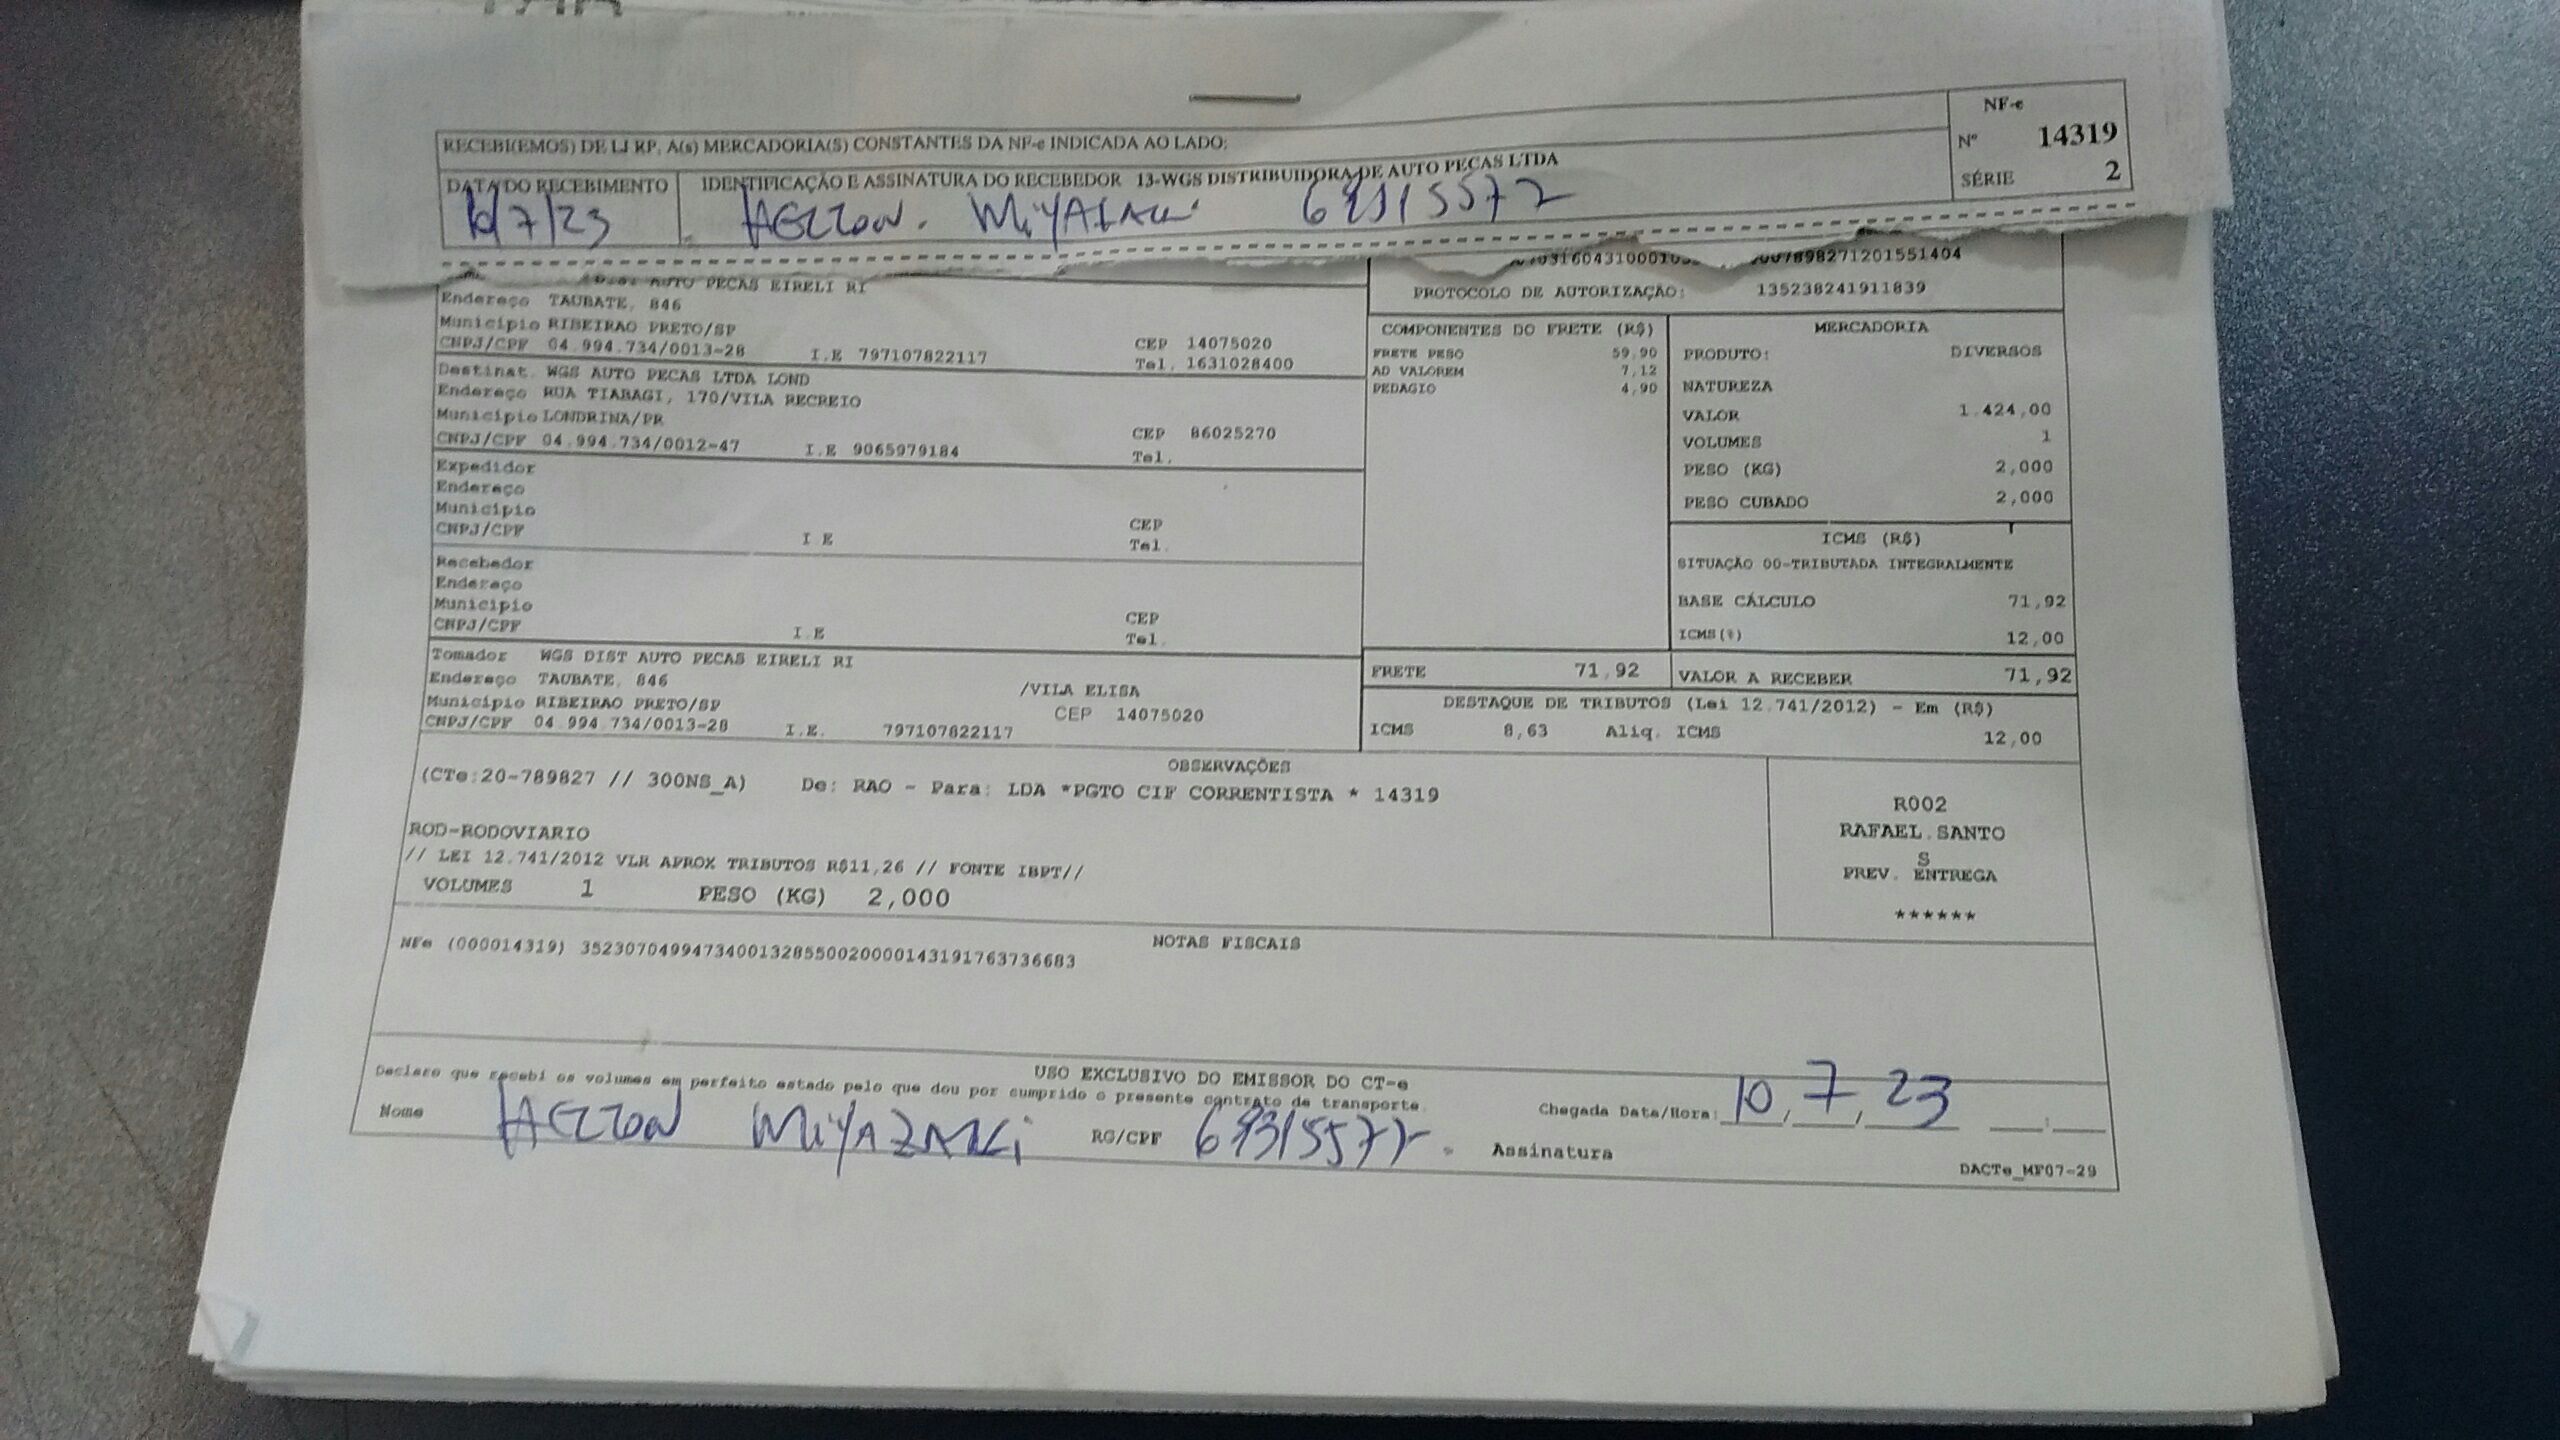 NF-e
RECEBI(EMOS) DE LJ RP, A(s) MERCADORIA(S) CONSTANTES DA NF-e INDICADA AO LADO;
Nº 14319
DATA DO RECEBIMENTO IDENTIFICAÇÃO E ASSINATURA DO RECEBEDOR 13-WGS DISTRIBUIDORA DE AUTO PEÇAS LTDA
SÉRIE 2
10/7/23
AUTO PECAS EIRELI RI
Endereço TAUBATE, 846
Município RIBEIRAO PRETO/SP
CEP 14075020
CNPJ/CPF 04.994.734/0013-28 I.E 797107822117
Tel. 1631028400
Destinat. WGS AUTO PECAS LTDA LOND
Endereço RUA TIABAGI, 170/VILA RECREIO
Município LONDRINA/PR
CEP 86025270
CNPJ/CPF 04.994.734/0012-47 I.E 9065979184
Tel.
Expedidor
Endereço
Município
CEP
CNPJ/CPF I E
Tel.
Recebedor
Endereço
Município
CEP
CNPJ/CPF I.E
Tel.
Tomador WGS DIST AUTO PECAS EIRELI RI
Endereço TAUBATE, 846 /VILA ELISA
Município RIBEIRAO PRETO/SP CEP 14075020
CNPJ/CPF 04.994.734/0013-28 I.E. 797107822117
PROTOCOLO DE AUTORIZAÇÃO: 135238241911839
COMPONENTES DO FRETE (R$)
FRETE PESO 59,90
AD VALOREM 7,12
PEDAGIO 4,90
MERCADORIA
PRODUTO: DIVERSOS
NATUREZA
VALOR 1.424,00
VOLUMES 1
PESO (KG) 2,000
PESO CUBADO 2,000
ICMS (R$)
SITUAÇÃO 00-TRIBUTADA INTEGRALMENTE
BASE CÁLCULO 71,92
ICMS(%) 12,00
FRETE 71,92 VALOR A RECEBER 71,92
DESTAQUE DE TRIBUTOS (Lei 12.741/2012) - Em (R$)
ICMS 8,63 Aliq. ICMS 12,00
OBSERVAÇÕES
(CTe:20-789827 // 300NS_A) De: RAO - Para: LDA *PGTO CIF CORRENTISTA * 14319
ROD-RODOVIARIO
// LEI 12.741/2012 VLR APROX TRIBUTOS R$11,26 // FONTE IBPT//
VOLUMES 1 PESO (KG) 2,000
R002
RAFAEL SANTO
S
PREV. ENTREGA
******
NOTAS FISCAIS
NFe (000014319) 35230704994734001328550020000143191763736683
USO EXCLUSIVO DO EMISSOR DO CT-e
Declaro que recebi os volumes em perfeito estado pelo que dou por cumprido o presente contrato de transporte.
Nome MIYAZAKI RG/CPF
Chegada Data/Hora: 10/7/23 :
Assinatura
DACTe_MF07-29